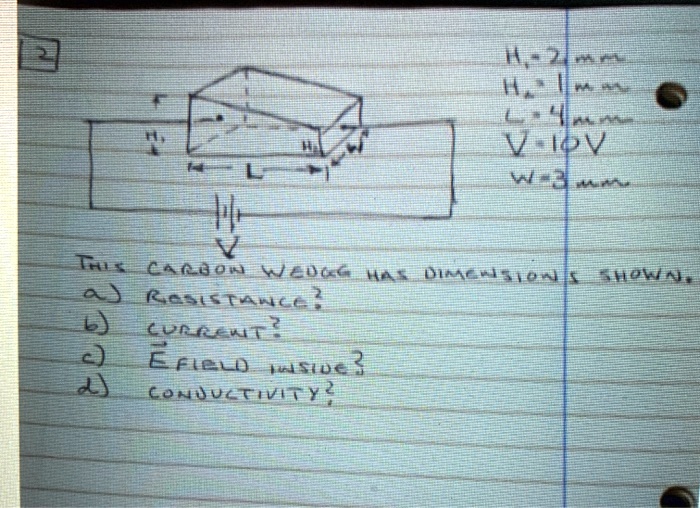 2
H₁ = 2 mm
H₂ = 1 mm
L = 4 mm
V = 10 V
W = 3 mm
H₁
H₂
W
L
V
THIS CARBON WEDGE HAS DIMENSIONS SHOWN.
a) RESISTANCE?
b) CURRENT?
c) E⃗ FIELD INSIDE?
d) CONDUCTIVITY?